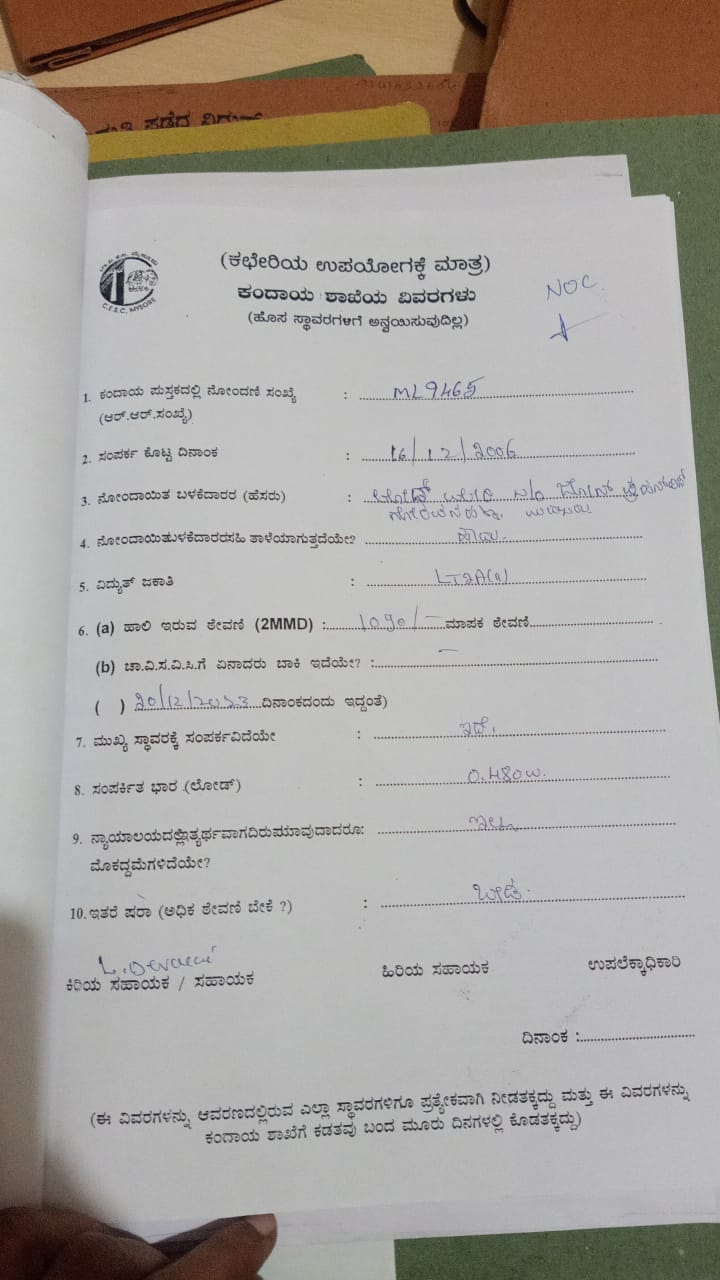 ಪಡೆದ
(ಕಛೇರಿಯ ಉಪಯೋಗಕ್ಕೆ ಮಾತ್ರ)
ಕಂದಾಯ ಶಾಖೆಯ ವಿವರಗಳು
(ಹೊಸ ಸ್ಥಾವರಗಳಿಗೆ ಅನ್ವಯಿಸುವುದಿಲ್ಲ)
C.E.S.C. MYSORE
NOC.
1. ಕಂದಾಯ ಪುಸ್ತಕದಲ್ಲಿ ನೋಂದಣಿ ಸಂಖ್ಯೆ : ML9465
(ಆರ್.ಆರ್.ಸಂಖ್ಯೆ)
2. ಸಂಪರ್ಕ ಕೊಟ್ಟ ದಿನಾಂಕ : 16/12/2006
3. ನೋಂದಾಯಿತ ಬಳಕೆದಾರರ (ಹೆಸರು) :
4. ನೋಂದಾಯಿತಬಳಕೆದಾರರಸಹಿ ತಾಳೆಯಾಗುತ್ತದೆಯೇ? ಹೌದು.
5. ವಿದ್ಯುತ್ ಜಕಾತಿ : LT2A(ii)
6. (a) ಹಾಲಿ ಇರುವ ಠೇವಣಿ (2MMD) : 1090/- ಮಾಪಕ ಠೇವಣಿ
(b) ಚಾ.ವಿ.ಸ.ವಿ.ಸಿ.ಗೆ ಏನಾದರು ಬಾಕಿ ಇದೆಯೇ? : -
( ) 20/12/2023 ದಿನಾಂಕದಂದು ಇದ್ದಂತೆ)
7. ಮುಖ್ಯ ಸ್ಥಾವರಕ್ಕೆ ಸಂಪರ್ಕವಿದೆಯೇ : ಇದೆ.
8. ಸಂಪರ್ಕಿತ ಭಾರ (ಲೋಡ್) : 0.480w.
9. ನ್ಯಾಯಾಲಯದಲ್ಲಿ ಇತ್ಯರ್ಥವಾಗದಿರುವಯಾವುದಾದರೂ: ಇಲ್ಲ
ಮೊಕದ್ದಮೆಗಳಿದೆಯೇ?
10. ಇತರೆ ಷರಾ (ಅಧಿಕ ಠೇವಣಿ ಬೇಕೆ ?) : ಬೇಡ.
ಕಿರಿಯ ಸಹಾಯಕ / ಸಹಾಯಕ ಹಿರಿಯ ಸಹಾಯಕ ಉಪಲೆಕ್ಕಾಧಿಕಾರಿ
ದಿನಾಂಕ :
(ಈ ವಿವರಗಳನ್ನು ಆವರಣದಲ್ಲಿರುವ ಎಲ್ಲಾ ಸ್ಥಾವರಗಳಿಗೂ ಪ್ರತ್ಯೇಕವಾಗಿ ನೀಡತಕ್ಕದ್ದು ಮತ್ತು ಈ ವಿವರಗಳನ್ನು
ಕಂದಾಯ ಶಾಖೆಗೆ ಕಡತವು ಬಂದ ಮೂರು ದಿನಗಳಲ್ಲಿ ಕೊಡತಕ್ಕದ್ದು)